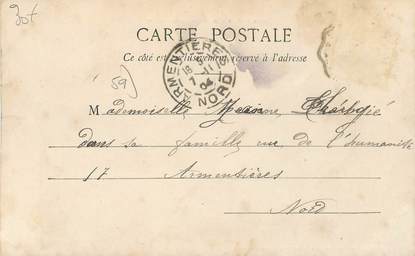 30f
CARTE POSTALE
Ce côté est exclusivement réservé à l'adresse
ARMENTIÈRES
NORD
04
59)
Mademoiselle
dans sa famille rue de l'humanité
17 Armentières
Nord